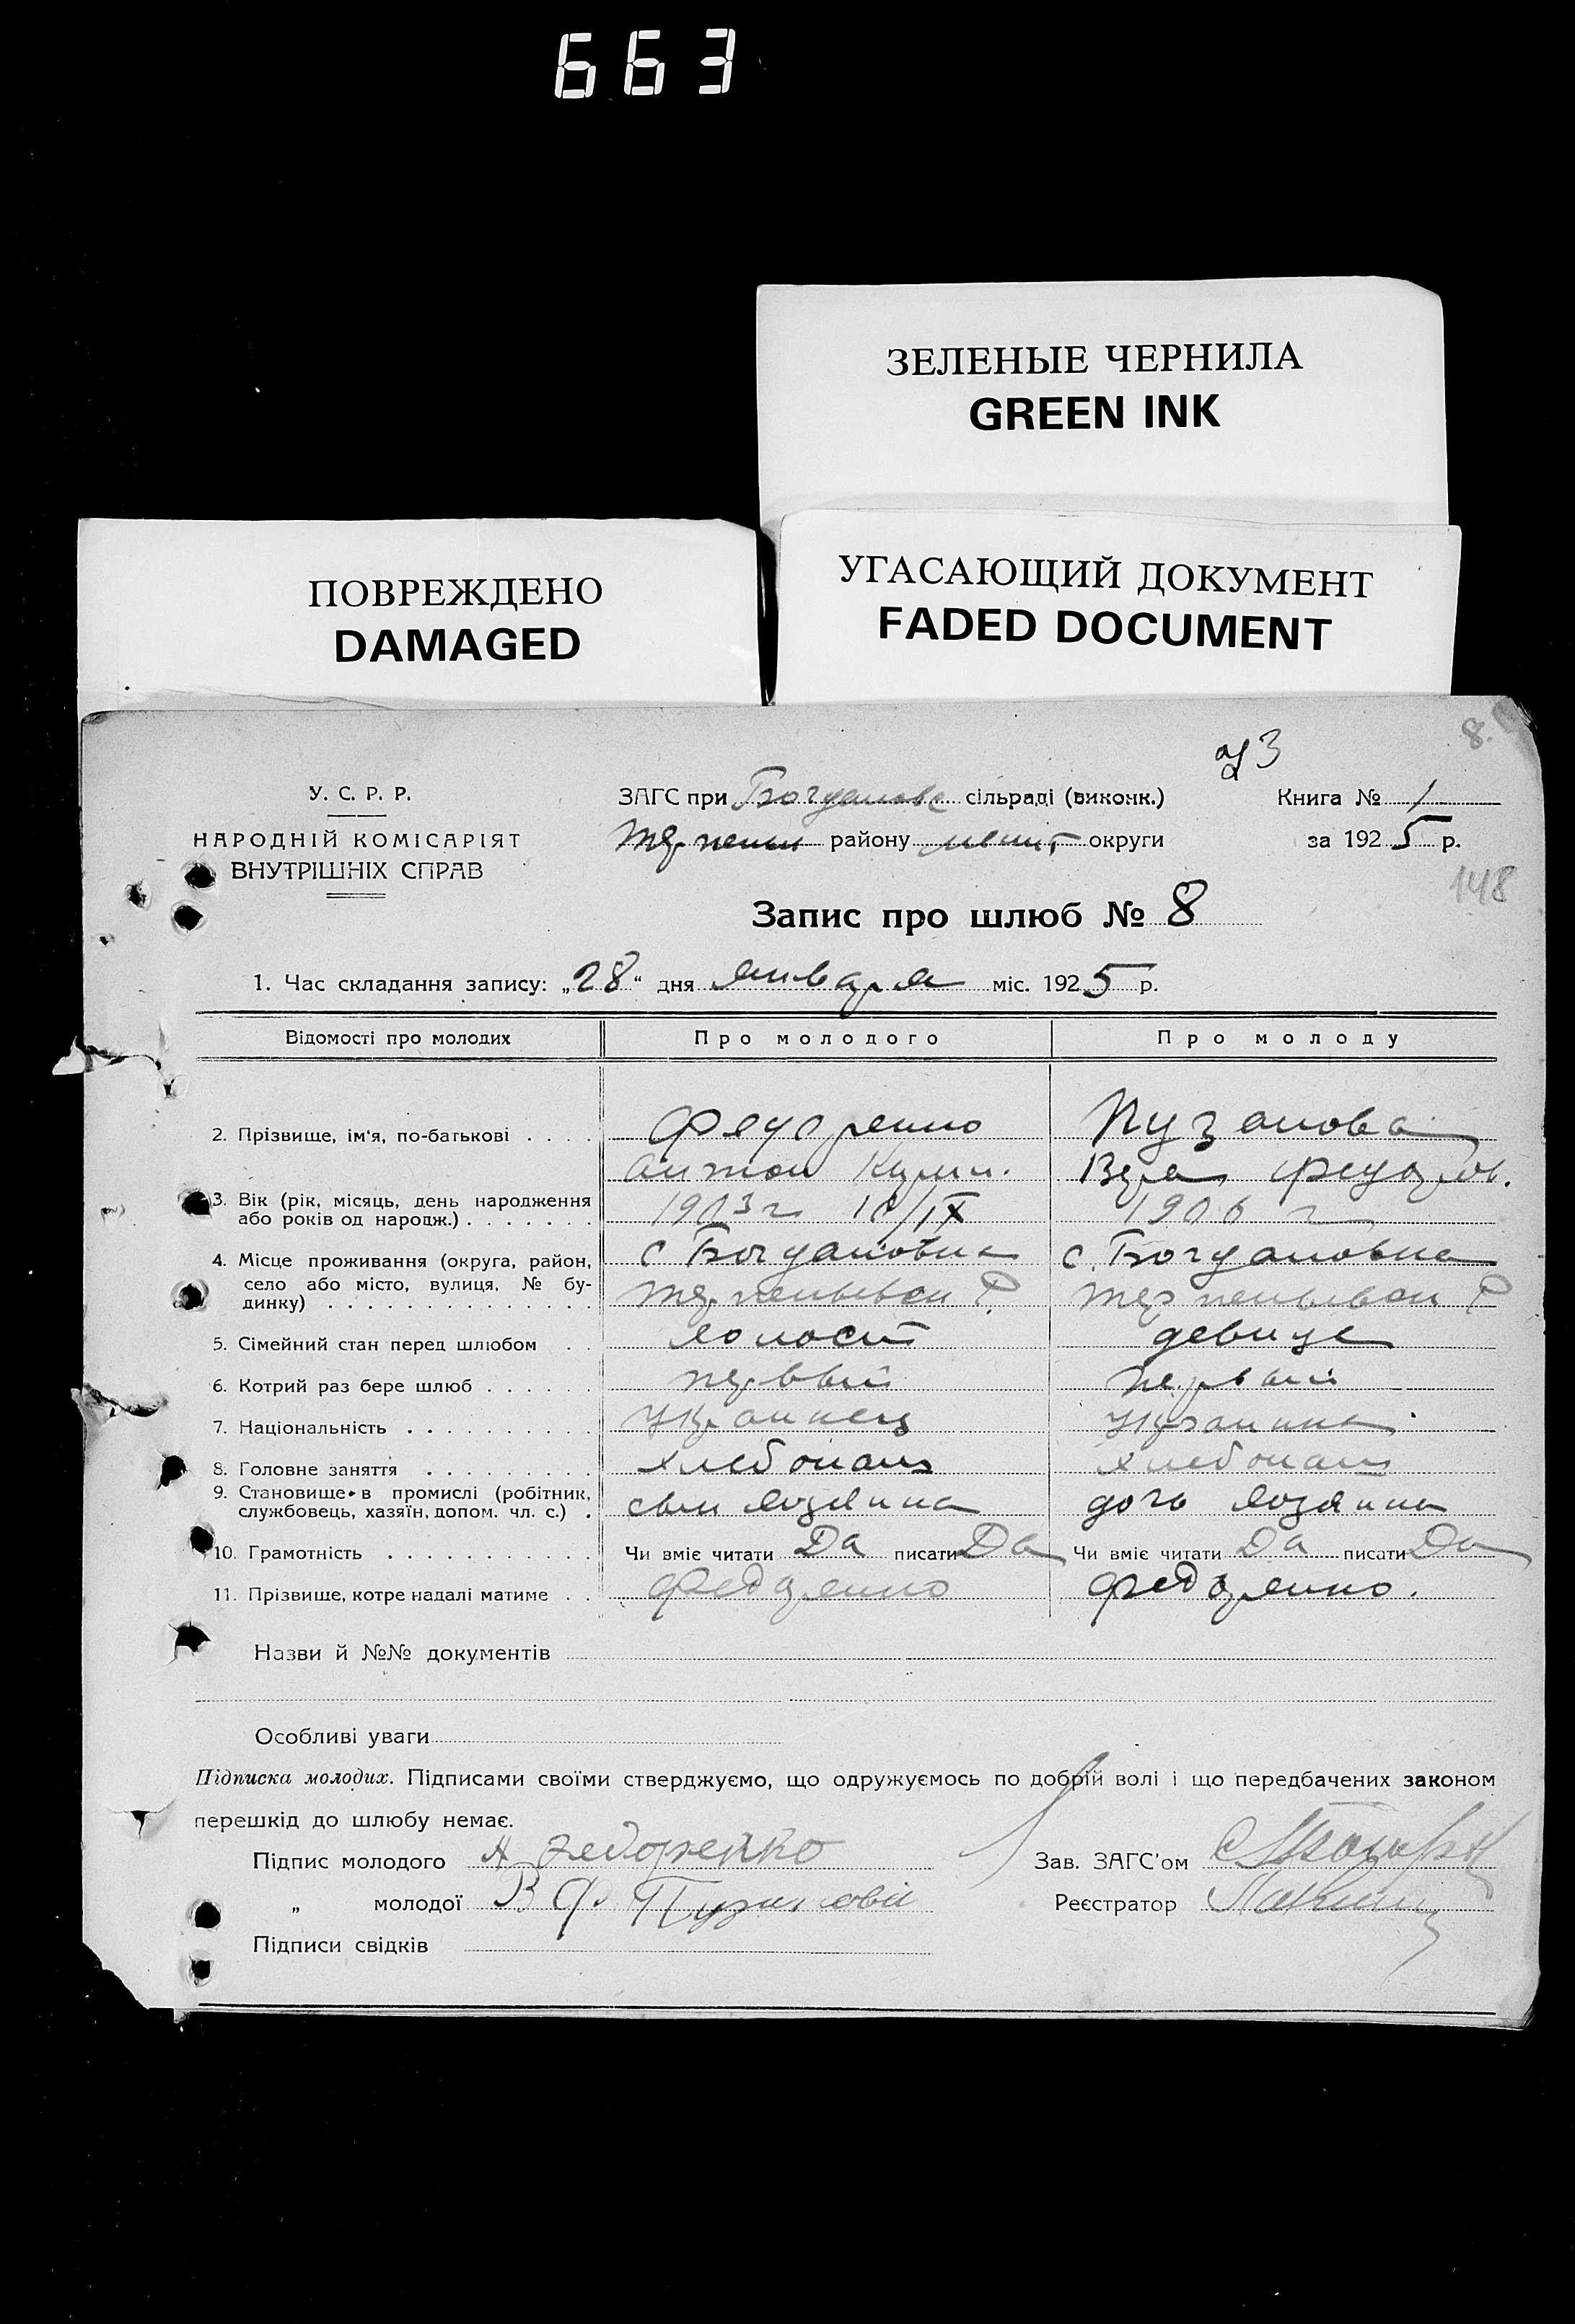 663
ЗЕЛЕНЫЕ ЧЕРНИЛА
GREEN INK
ПОВРЕЖДЕНО
DAMAGED
УГАСАЮЩИЙ ДОКУМЕНТ
FADED DOCUMENT
8.
У. С. Р. Р.
НАРОДНІЙ КОМІСАРІЯТ
ВНУТРІШНІХ СПРАВ
ЗАГС при Богдановс сільраді (виконк.)
Терпен району мелит округи
Книга № 1
за 1925 р.
148
Запис про шлюб № 8
1. Час складання запису: „28“ дня января міс. 1925 р.
Відомості про молодих Про молодого Про молоду
2. Прізвище, ім'я, по-батькові . . . . Федоренко Пузанова
Антон Вера Федоров.
3. Вік (рік, місяць, день народження
або років од народж.) . . . . . . . 1903 г 10/IX 1906 г
4. Місце проживання (округа, район,
село або місто, вулиця, № бу-
динку) . . . . . . . . . . . . . .
с Богдановка с. Богдановка
Терпеньевск Р. Терпеньевск Р
5. Сімейний стан перед шлюбом . . холост девица
6. Котрий раз бере шлюб . . . . . . первый первый
7. Національність . . . . . . . . . . Украинец Украинка
8. Головне заняття . . . . . . . . . Хлебопаш Хлебопаш
9. Становище в промислі (робітник,
службовець, хазяїн, допом. чл. с.) . сын хозяина дочь хозяина
10. Грамотність . . . . . . . . . . . Чи вміє читати Да писати Да Чи вміє читати Да писати Да
11. Прізвище, котре надалі матиме . . Федоренко Федоренко.
Назви й №№ документів
Особливі уваги
Підписка молодих. Підписами своїми стверджуємо, що одружуємось по добрій волі і що передбачених законом
перешкід до шлюбу немає.
Підпис молодого А Федоренко Зав. ЗАГС'ом
„ молодої В Ф. Пузанова Реєстратор
Підписи свідків